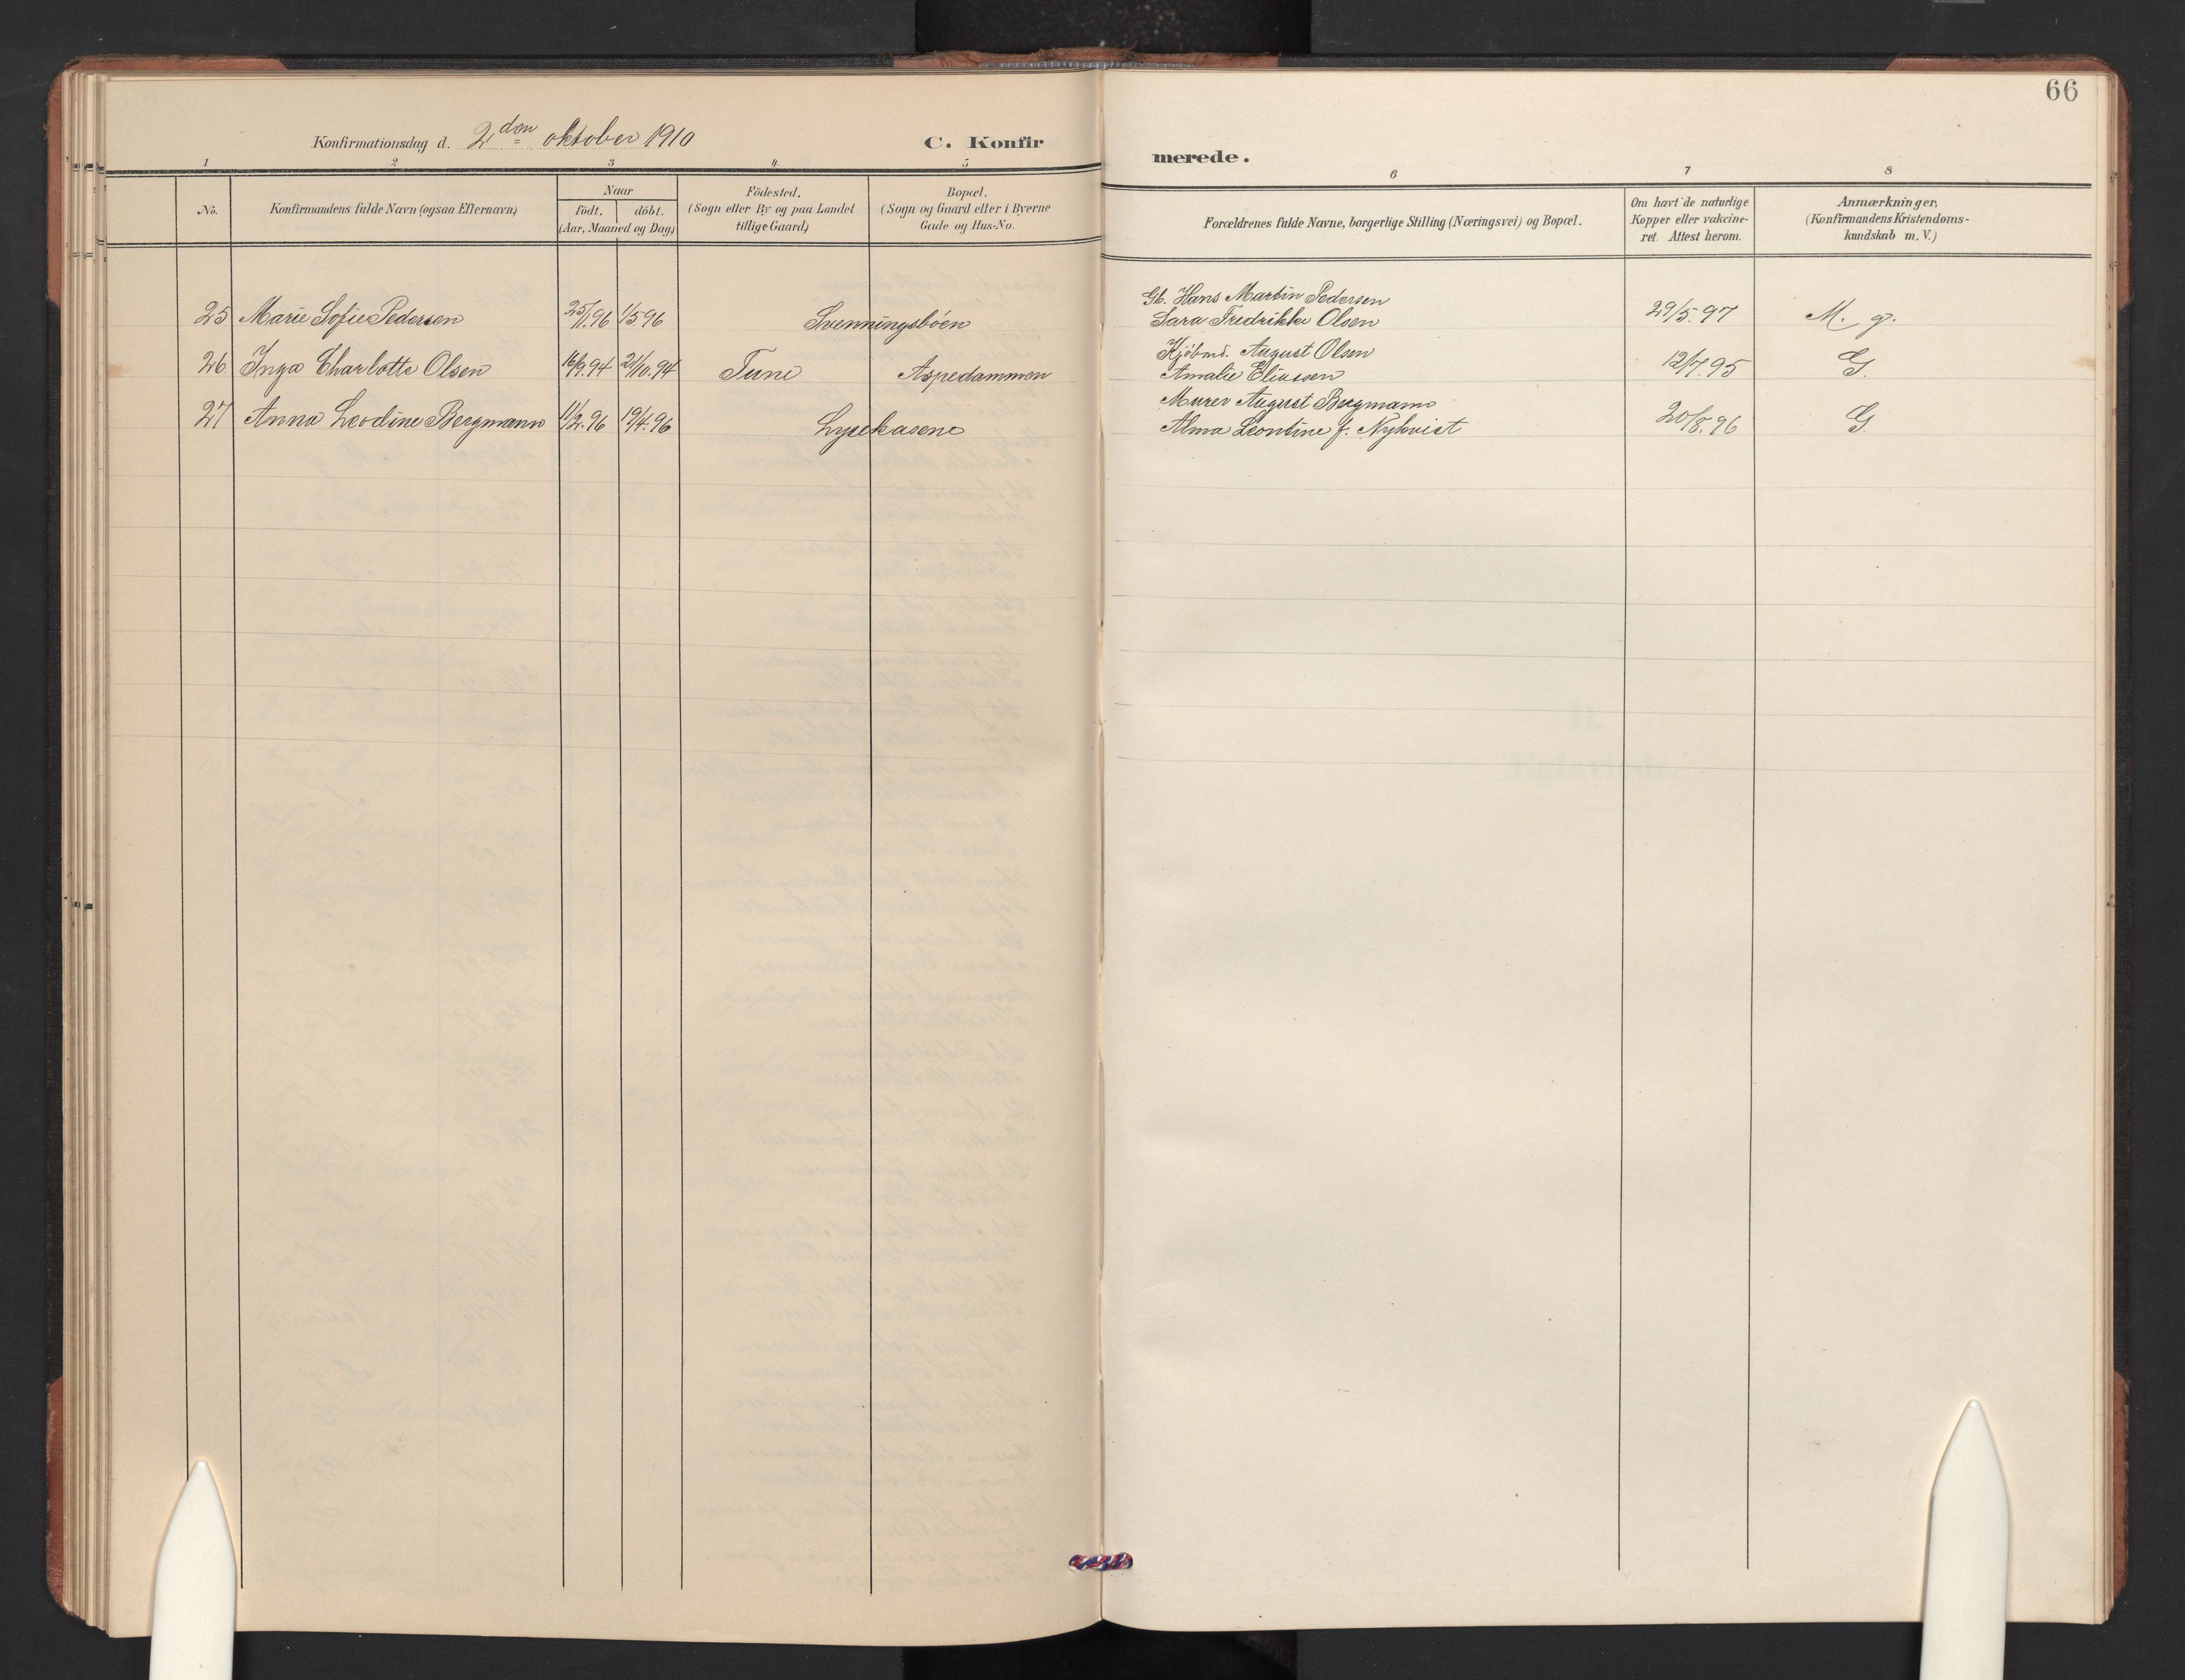 66
Konfirmationsdag d. 2den oktober 1910
C. Konfir
merede.
1 2 3 4 5 6 7 8
No. Konfirmandens fulde Navn (ogsaa Efternavn) Naar født. døbt. (Aar, Maaned og Dag) Födested. (Sogn eller By og paa Landet tillige Gaard) Bopæl. (Sogn og Gaard eller i Byerne Gade og Hus-No. Forældrenes fulde Navne, borgerlige Stilling (Næringsvei) og Bopæl. Om havt de naturlige Kopper eller vakcineret. Attest herom. Anmærkninger, (Konfirmandens Kristendomskundskab m. V.)
Gb. Hans Martin Pedersen
25 Marie Sofie Pedersen 25/1.96 1/5 96 Svenningsböen Sara Fredrikke Olsen 29/5.97 M. g.
Kjöbmd. August Olsen
26 Inga Charlotte Olsen 16/9.94 21/10.94 Tune Aspedammen Amalie Eliassen 12/7.95 G.
Murer August Bergmann
27 Anna Leodine Bergmann 11/2.96 19/4.96 Lysekasene Alma Leontine f. Nykvist 20/8.96 G